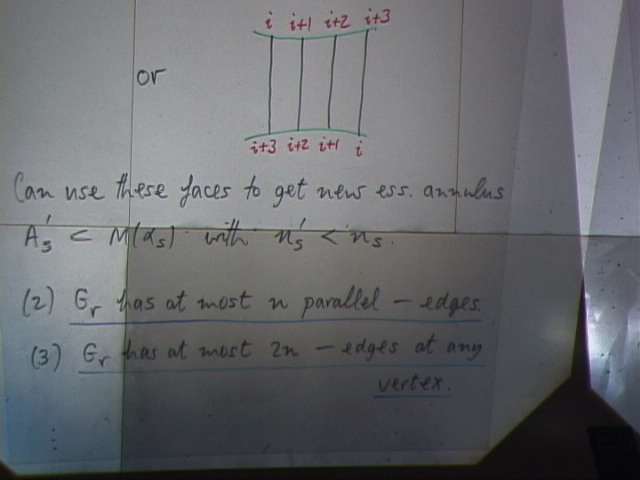 i i+1 i+2 i+3
or
i+3 i+2 i+1 i
Can use these faces to get new ess. annulus
A's ⊂ M(αs) with n's < ns.
(2) Gr has at most n parallel – edges.
(3) Gr has at most 2n – edges at any
vertex.
⋮